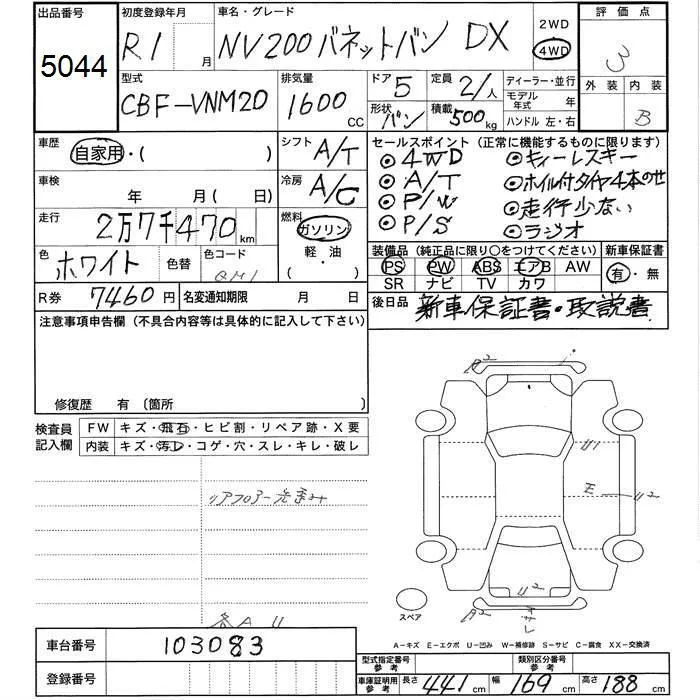 出品番号
5044
初度登録年月
R1 月
車名・グレード
NV200バネットバン DX
2WD
4WD
評価点
3
外装 内装
B
型式
CBF-VNM20
排気量
1600 CC
ドア 5
形状 バン
定員 2/人
積載 500kg
ディーラー・並行
モデル年式 年
ハンドル 左・右
車歴
自家用・( )
シフト A/T
冷房 A/C
車検
年 月(日)
走行
2万7千470 km
燃料
ガソリン
軽・油
( )
色
ホワイト
色替
色コード
QM1
R券 7460円
名変通知期限 月 日
セールスポイント (正常に機能するものに限ります)
◎4WD ◎キーレスキー
◎A/T ◎ホイル付タイヤ4本のせ
◎P/W ◎走行少ない
◎P/S ◎ラジオ
装備品 (純正品に限り〇をつけてください)
PS PW ABS エアB AW
SR ナビ TV カワ
新車保証書
有・無
後日品 新車保証書・取説書
注意事項申告欄 (不具合内容等は具体的に記入して下さい)
修復歴 有 (箇所
検査員記入欄
FW キズ・飛石・ヒビ割・リペア跡・X要
内装 キズ・汚レ・コゲ・穴・スレ・キレ・破レ
リアフロアー歪み
各A U
A2
U1
E U2
U2
A2
スペア
A-キズ E-エクボ U-凹み W-補修跡 S-サビ C-腐食 XX-交換済
車台番号 103083
登録番号
型式指定番号 参考
類別区分番号 参考
車庫証明用 参考
長さ 441cm 幅 169cm 高さ 188cm